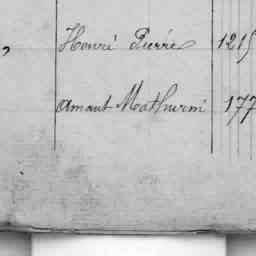 Henri Pierre 1215
Amant Mathurin 177